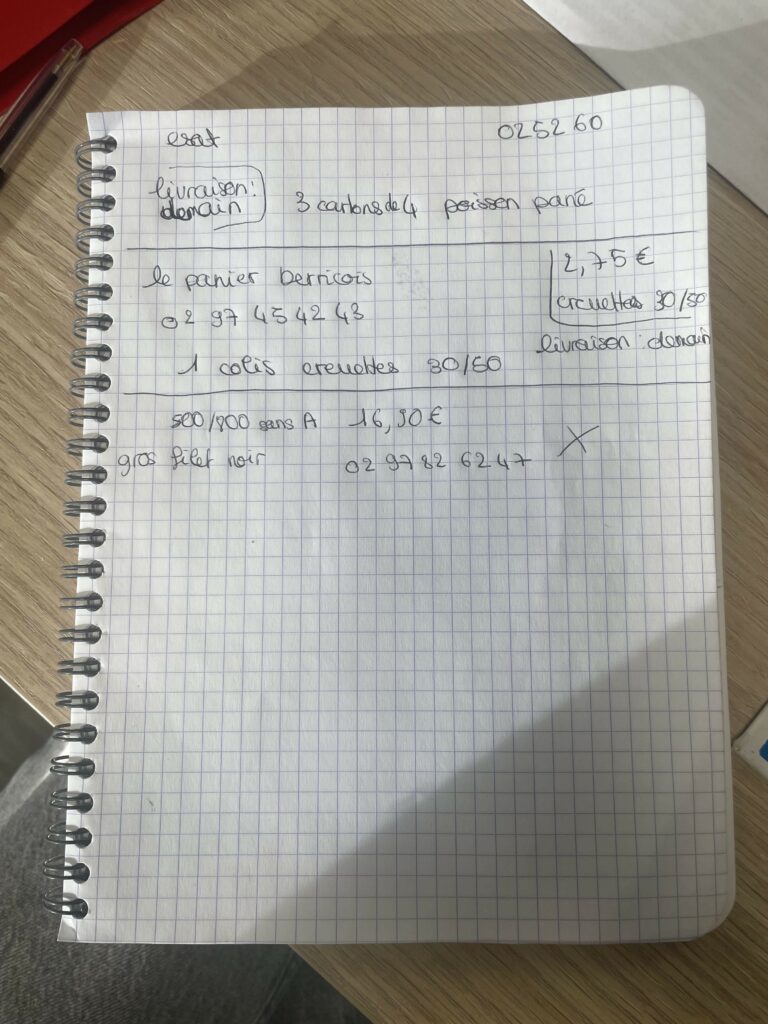 esat 025260
livraison:
demain
3 cartons de 4 poisson pané
le panier berricois
2,75 €
02 97 45 42 43
crevettes 30/50
livraison : demain
1 colis crevettes 30/50
500/800 sans A 16,90€
gros filet noir 02 97 82 62 47